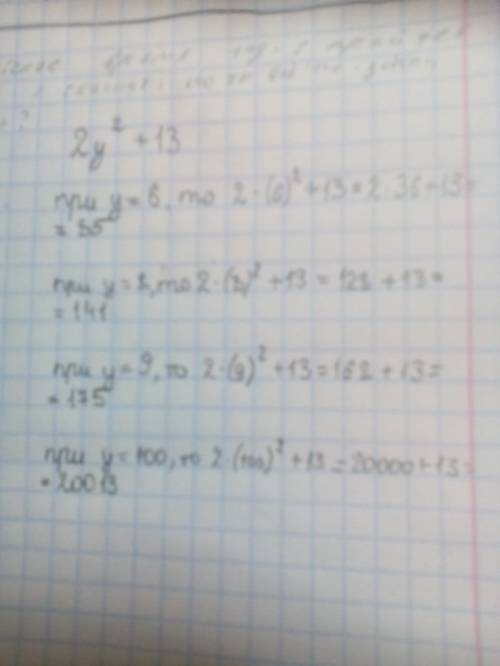 2y² + 13
при y = 6, то 2·(6)² + 13 = 2·36 + 13 =
= 85
при y = 8, то 2·(8)² + 13 = 128 + 13 =
= 141
при y = 9, то 2·(9)² + 13 = 162 + 13 =
= 175
при y = 100, то 2·(100)² + 13 = 20000 + 13 =
= 20013